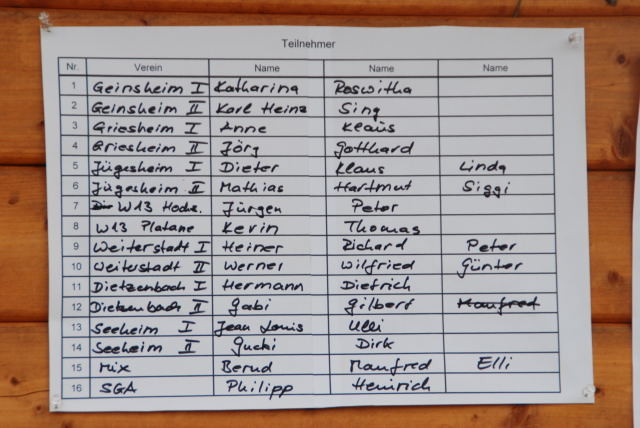 Teilnehmer
Nr. Verein Name Name Name
1 Geinsheim I Katharina Roswitha
2 Geinsheim II Karl Heinz Sing
3 Griesheim I Anne Klaus
4 Griesheim II Jörg Gotthard
5 Jügesheim I Dieter Klaus Linda
6 Jügesheim II Mathias Hartmut Siggi
7 W13 Hochs. Jürgen Peter
8 W13 Platane Kevin Thomas
9 Weiterstadt I Heiner Richard Peter
10 Weiterstadt II Werner Wilfried Günter
11 Dietzenbach I Hermann Dietrich
12 Dietzenbach II Gabi Gilbert Manfred
13 Seeheim I Jean Louis Ulli
14 Seeheim II Gucki Dirk
15 Mix Bernd Manfred Elli
16 SGA Philipp Heinrich